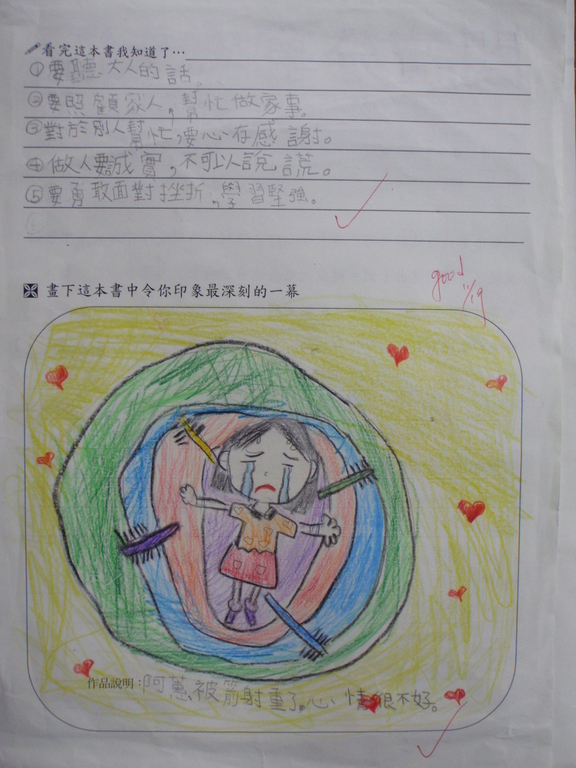 看完這本書我知道了…
①要聽大人的話。
②要照顧家人,幫忙做家事。
③對於別人幫忙,要心存感謝。
④做人要誠實,不可以說謊。
⑤要勇敢面對挫折,學習堅強。
good
11/19
畫下這本書中令你印象最深刻的一幕
作品說明:阿蕙被箭射重了。心情很不好。